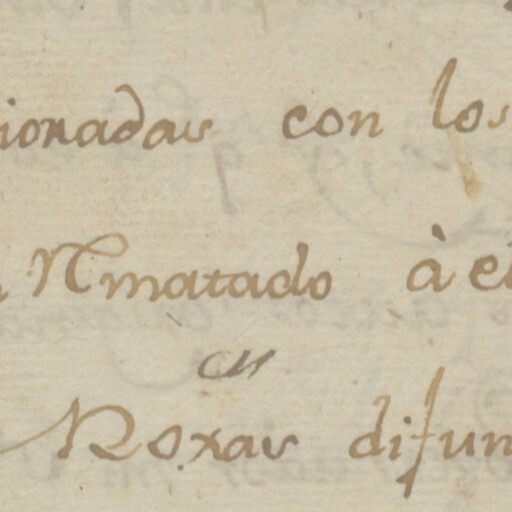 ionadas con los
Rmatado à el
en
Roxas difun